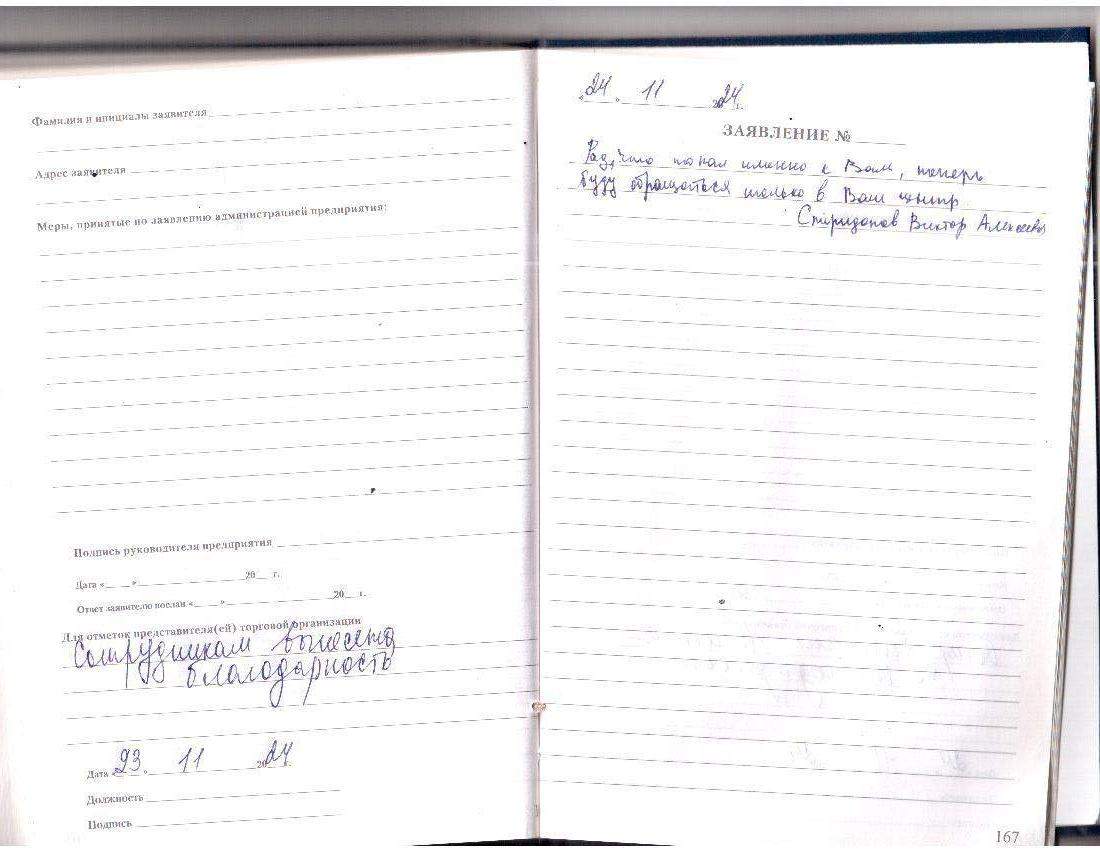 Фамилия и инициалы заявителя
Адрес заявителя
Меры, принятые по заявлению администрацией предприятия:
Подпись руководителя предприятия
Дата «____» ____________ 20__ г.
Ответ заявителю послан «____» ____________ 20__ г.
Для отметок представителя(ей) торговой организации
Сотрудникам вынесена
благодарность
Дата «23» 11 2024
Должность
Подпись
«24» 11 2024г.
ЗАЯВЛЕНИЕ №
Рад, что попал именно к Вам, теперь
буду обращаться только в Ваш центр
Спиридонов Виктор Алексеевич
167